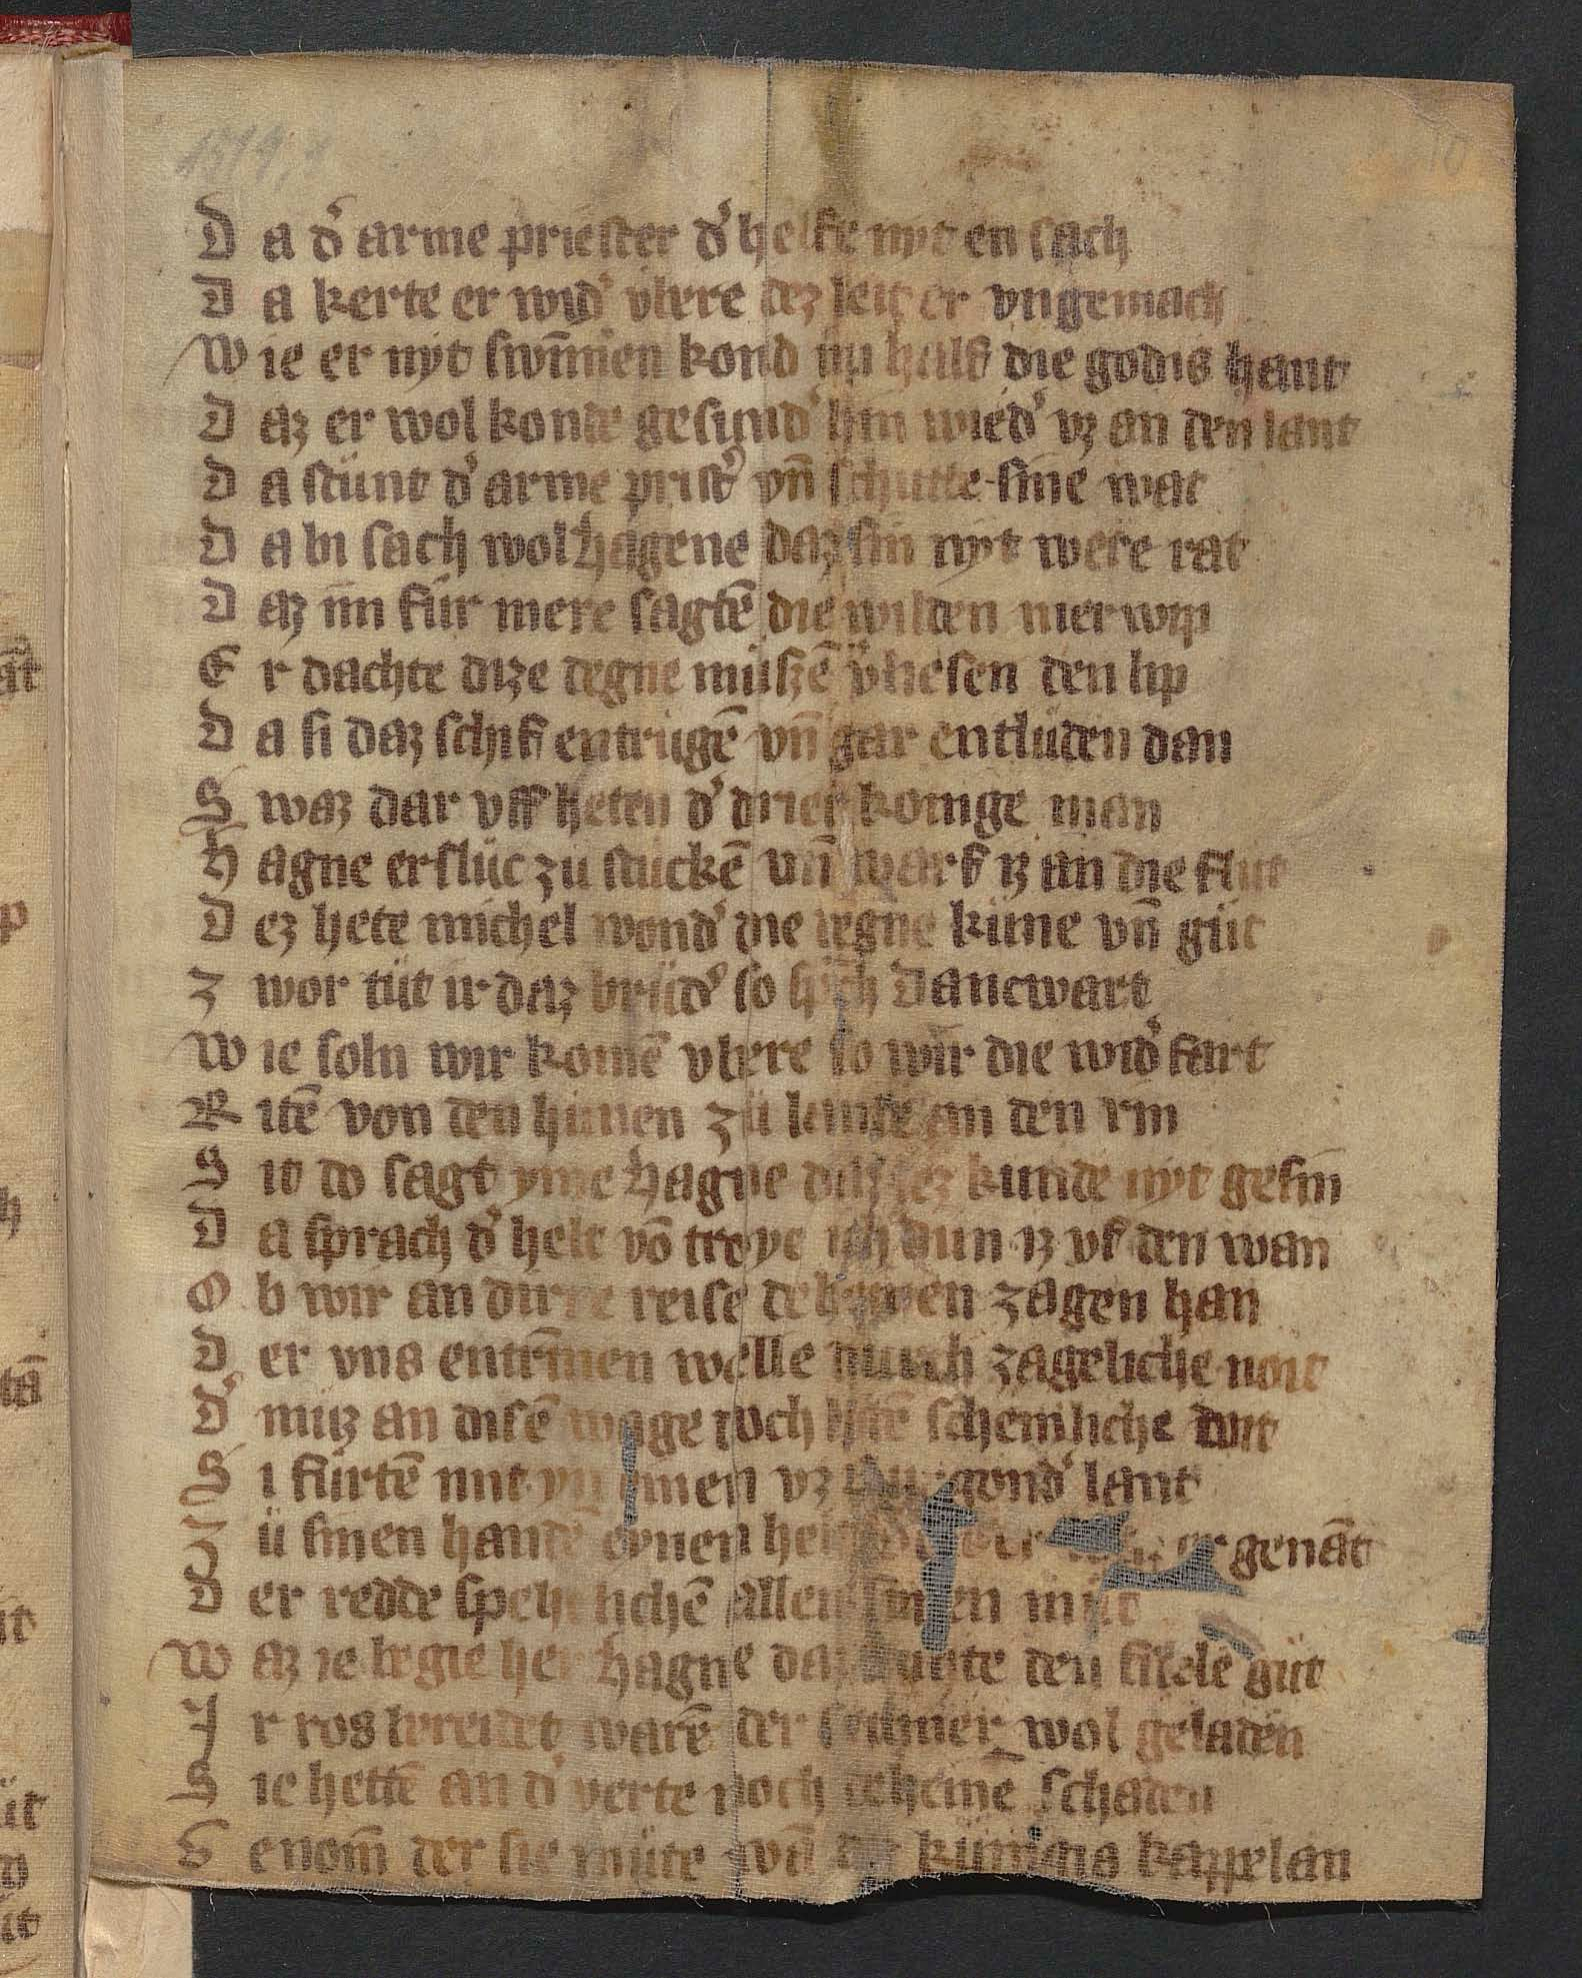 D a d' arme priester d' helfe nyt en sach
D a kerte er wid' vbere dez leit er vngemach
W ie er nyt swm̄en kond im half die godis hant
D az er wol konde gesund' hin wied' vz an den lant
D a stünt d' arme prist' vn̄ schutte sine wat
D a bi sach wol hagene daz sin nyt were rat
D az im für mere sagtē die wilden merwip
E r dachte dize degne müszē v'liesen den lip
D a si daz schif entrügē vn̄ gar entlüden dan
S waz dar vff heten d' drier konige man
H agne ersluc zu stuckē vn̄ warf iz an die flut
D ez hete michel wond' die degne küne vn̄ güt
Z wor tüt ir daz brüd' so sp̄ch Dancwart
W ie soln wir komē vbere so wir die wid' fart
R itē von den hunen zü lande an den rin
S it do sagt yme hagne daz dez kunde nyt gesin
D a sprach d' helt vō troye ich dun iz vf den wan
O b wir an dirre reise deheinen zagen han
D er vns entrīnen welle durch zageliche noit
D' müz an disē wage doch lidē schemliche doit
S i fürtē mit yn einen vz burgond' lant
Z ü sinen handē eynen helt er genāt
D er redde spehelichē allen sinen müt
W az ie begie her hagne daz duhte den fidelē güt
I r ros bereidet warē der seumer wol geladen
S ie hettē an d' verte noch deheinē schaden
G enom̄ der sie müte wā des kuniges kappelan